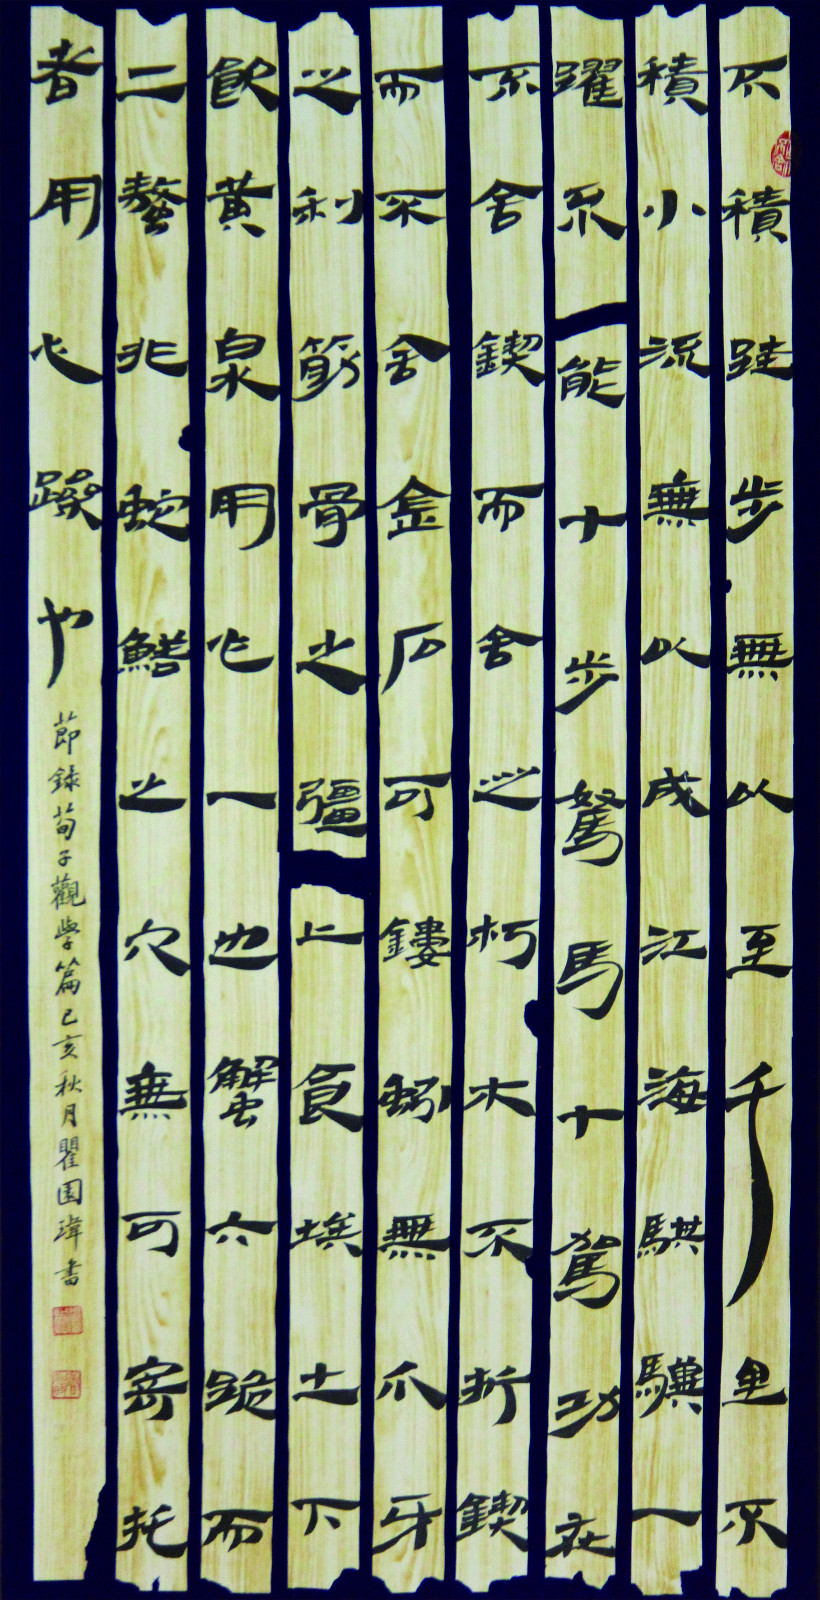 不積跬步無以至千里不
積小流無以成江海騏驥一
躍不能十步駑馬十駕功在
不舍鍥而舍之朽木不折鍥
而不舍金石可鏤蚓無爪牙
之利筋骨之彊上食埃土下
飲黃泉用心一也蟹六跪而
二螯非蛇鱔之穴無可寄托
者用心躁也
節錄荀子觀學篇己亥秋月瞿園瑋書